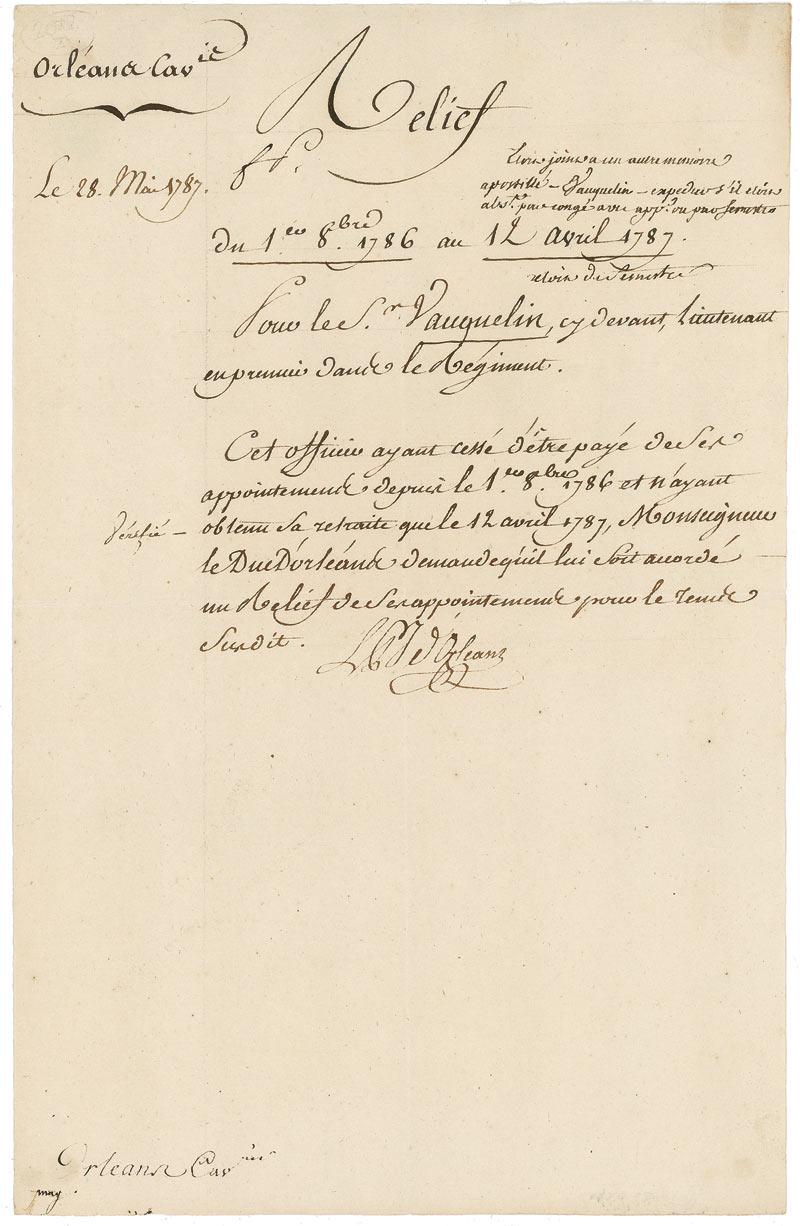 Orléans Cav.ie
Relief
Le 28. Mai 1787.
étoit joint a un autre memoire
apostillé - Vauquelin - expedier s'il etoit
abs.t par congé avec app.ts ou par semestre
du 1.er 8.bre 1786 au 12 avril 1787.
etoit de Semestre
Pour le S.r Vauquelin, cy devant, Lieutenant
en premier dans le Régiment.
Cet officier ayant cessé d'être payé de Ses
appointemens depuis le 1.er 8.bre 1786 et n'ayant
Vérifié - obtenu Sa retraite que le 12 avril 1787, Monseigneur
le Duc D'orléans demande qu'il lui Soit accordé
un Relief de Ses appointemens pour le Tems
Susdit.
L P J d'Orleans
Orleans Cav.rie
may